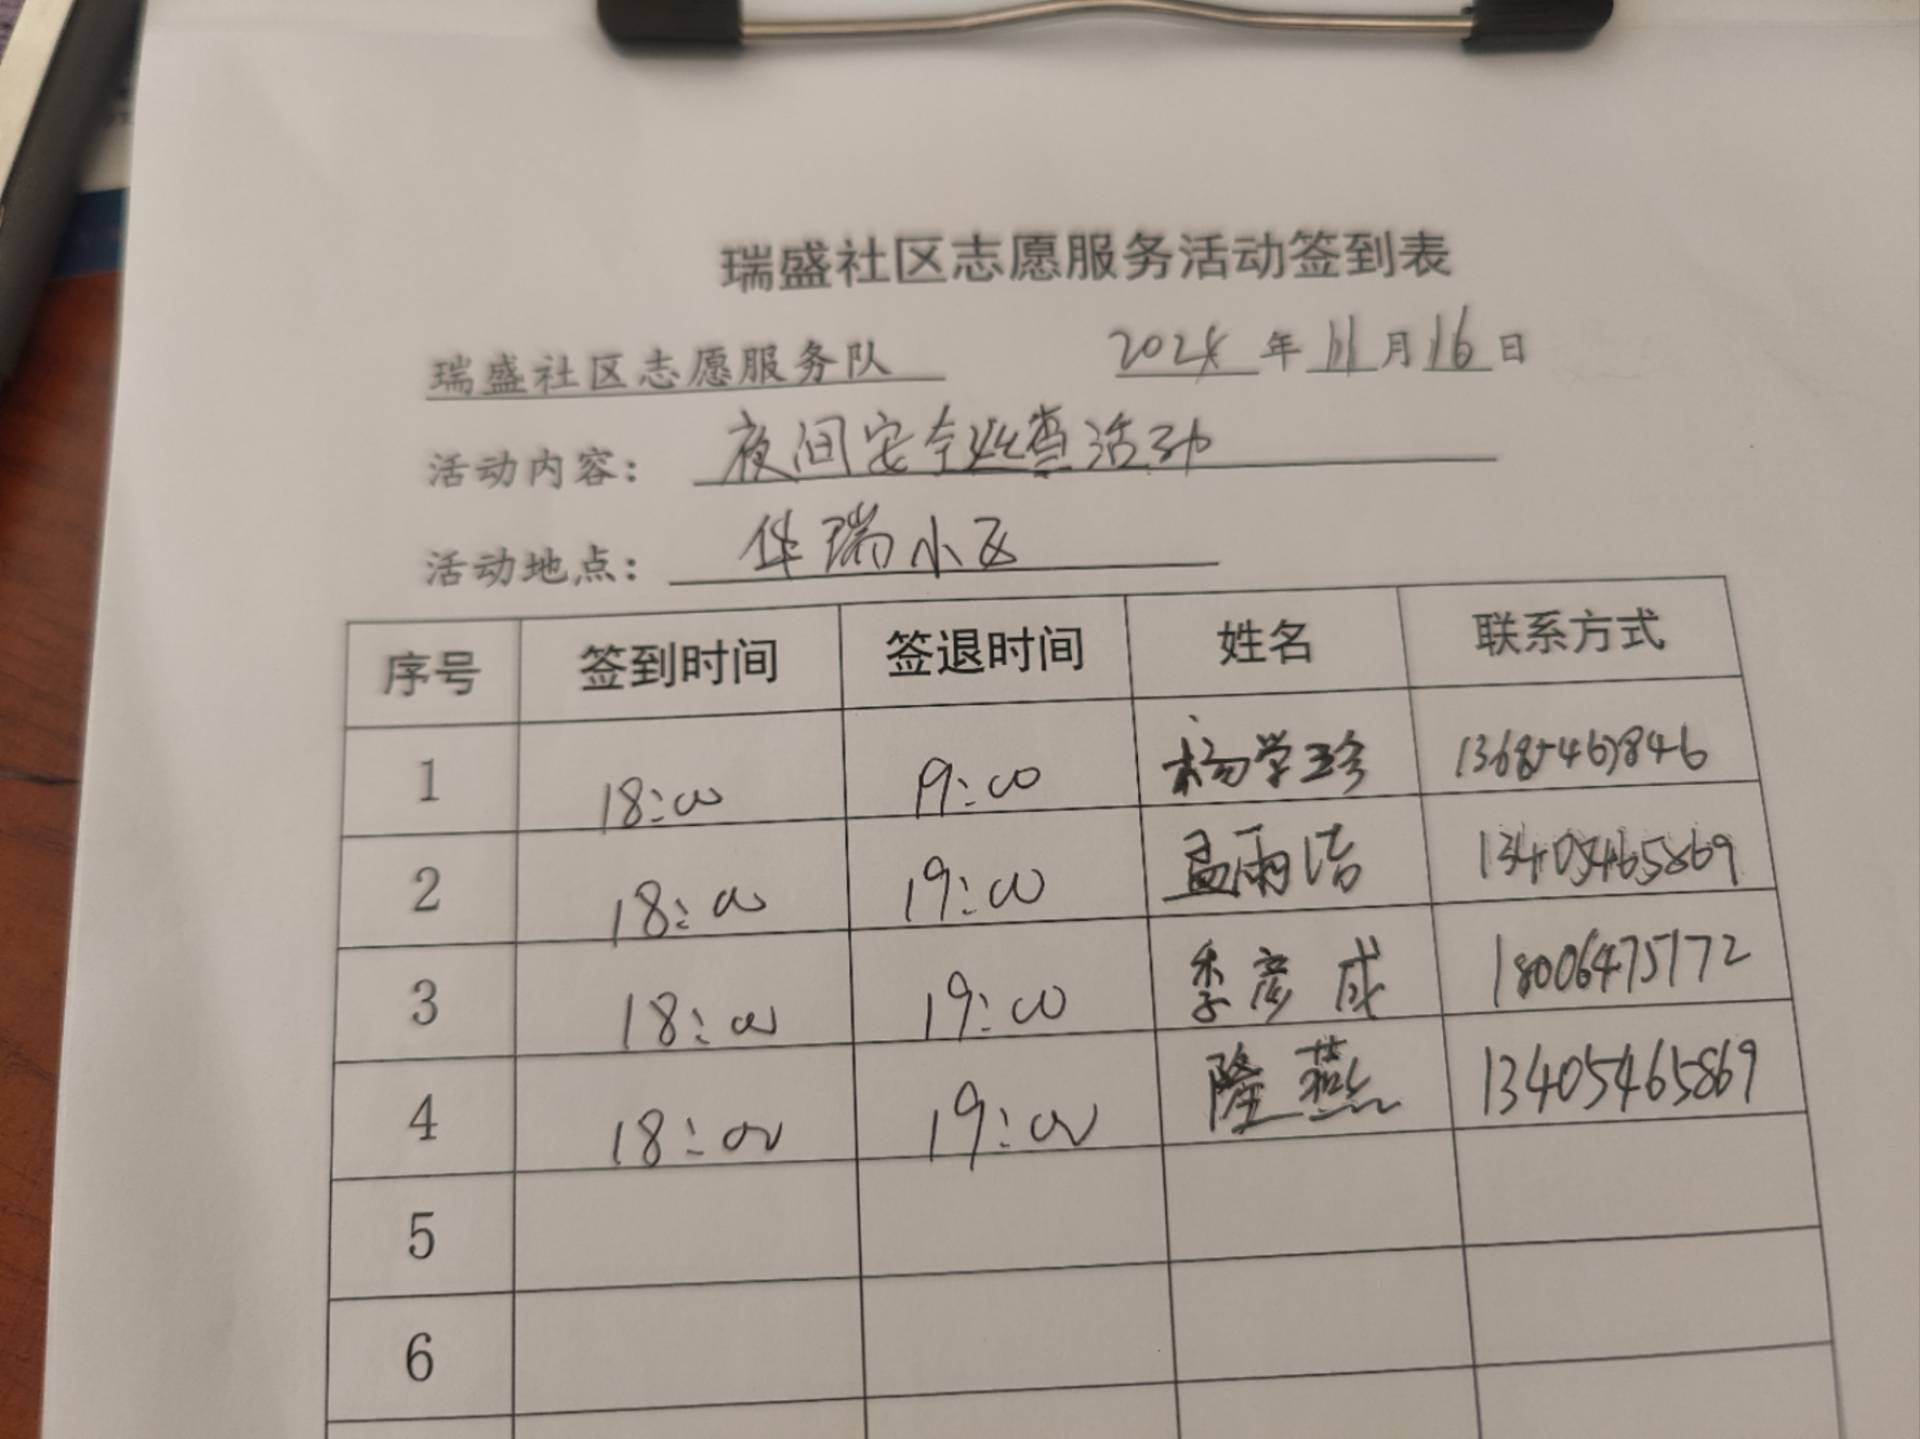 瑞盛社区志愿服务活动签到表
瑞盛社区志愿服务队 2024 年 11 月 16 日
活动内容: 夜间安全巡查活动
活动地点: 华瑞小区
序号 签到时间 签退时间 姓名 联系方式
1 18:00 19:00 杨学珍
2 18:00 19:00 孟雨洁 13405465869
3 18:00 19:00 季彦成 18006475172
4 18:00 19:00 隆燕 13405465869
5
6